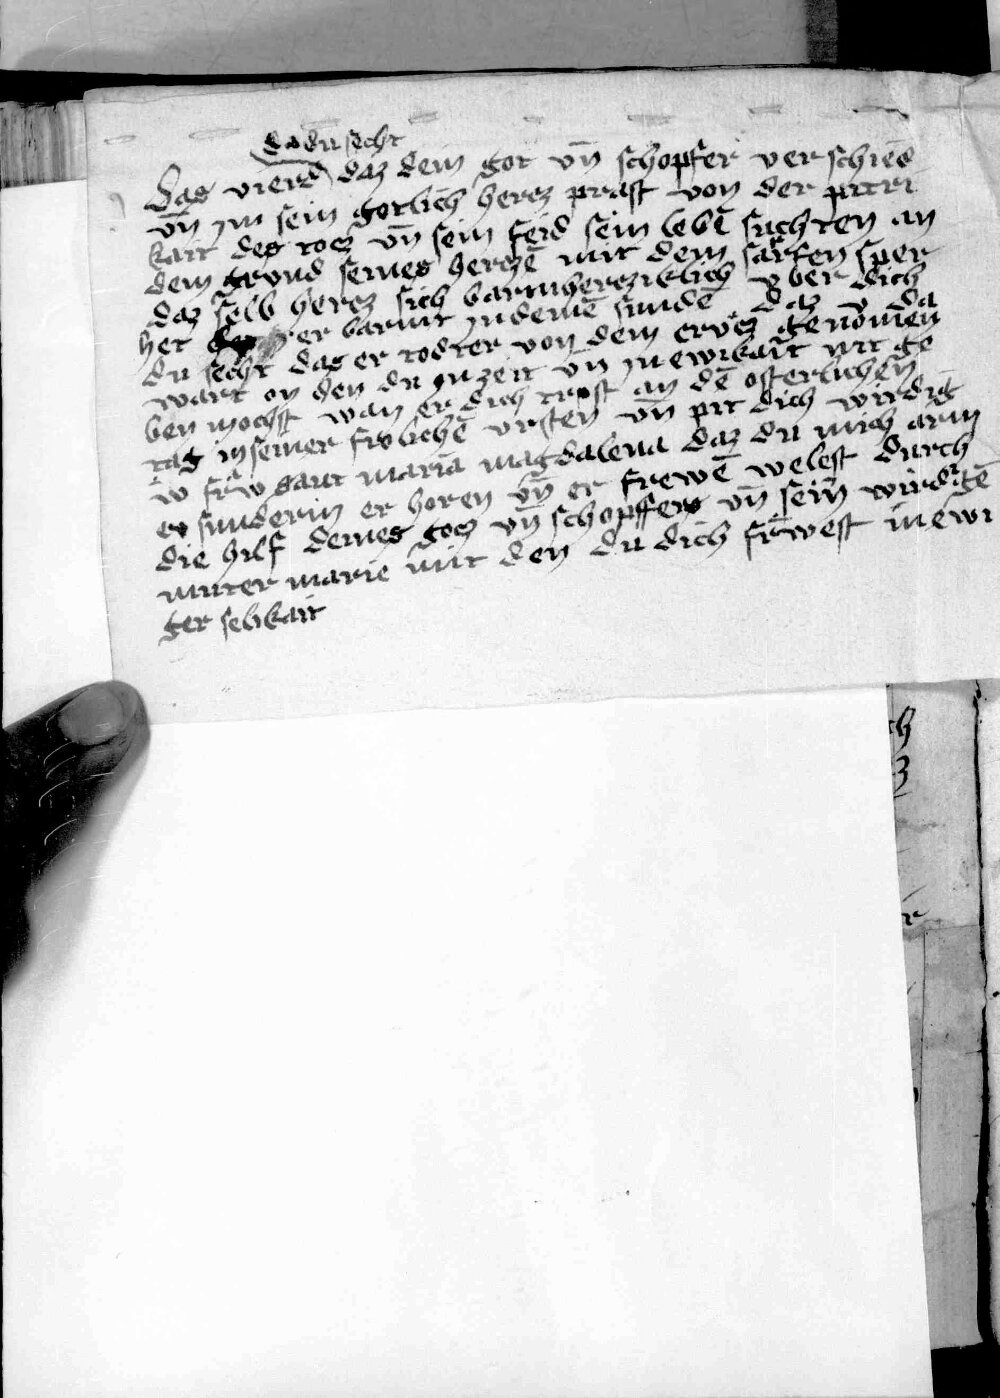 da du secht
Das vierd daz dein got vn̄ schopfer verschied
vn̄ ym sein gotlich hercz prast von der pitri
kait des tocz vn̄ sein feid sein lebē suchten an
dem grund seines herczē mit dem sarfen sper
daz selb hercz sich barmhercziklich vber dich
het er barmt yn deinē sundē daz v da
du secht das er todter von dem crevcz genomen
wart on den du yn zeit vn̄ yn ewikait nit ge
ben mochst wan er dich trost an dē osterlichen
tag in seiner frolichē vrsten vn̄ pit dich wirdig
w frw sant maria magdalena daz du mich arm
ev sunderin er horen vn̄ er frewē welest durch
die hilf deines gocz vn̄ schopffers vn̄ sein wirdigē
muter marie mit den du dich frwest in ewi
ger selikait